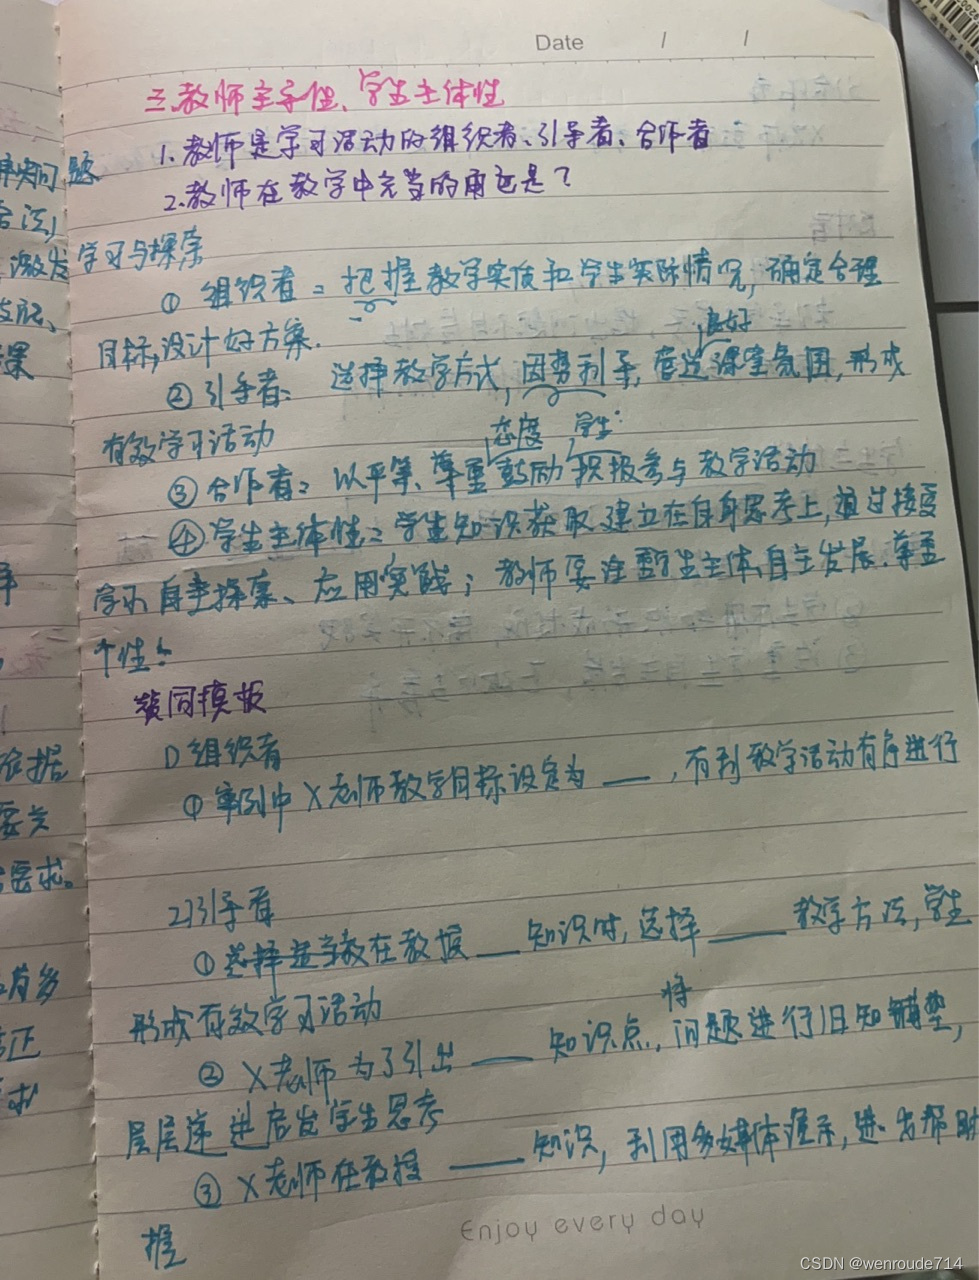 Date / /
三.教师主导性、学生主体性
1.教师是学习活动的组织者、引导者、合作者
2.教师在教学中充当的角色是?
学习与探索
① 组织者:把握教学实质和学生实际情况,确定合理
目标,设计好方案.
良好
② 引导者: 选择教学方式,因势利导,营造课堂氛围,形成
有效学习活动
态度 学生
③ 合作者:以平等、尊重鼓励积极参与教学活动
④ 学生主体性:学生知识获取建立在自身思考上,通过接受
学习 自主探索、应用实践;教师要注重学生主体、自主发展.尊重
个性.
1)组织者
① 案例中X老师教学目标设定为 ___ ,有利教学活动有序进行
2)引导者
① 在教授 ___ 知识时,选择 ___ 教学方法,学生
形成有效学习活动
将
② X老师为了引出 ___ 知识点,问题进行旧知铺垫,
层层递进启发学生思考
③ X老师在教授 ___ 知识,利用多媒体演示,进一步帮助
握
Enjoy every day
题
合法,
激发
课
依据
要关
要求。
有多
正
求
CSDN @wenroude714